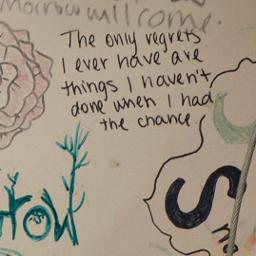 morrow will come.
The only regrets
I ever have are
things I haven't
done when I had
the chance.
HOW